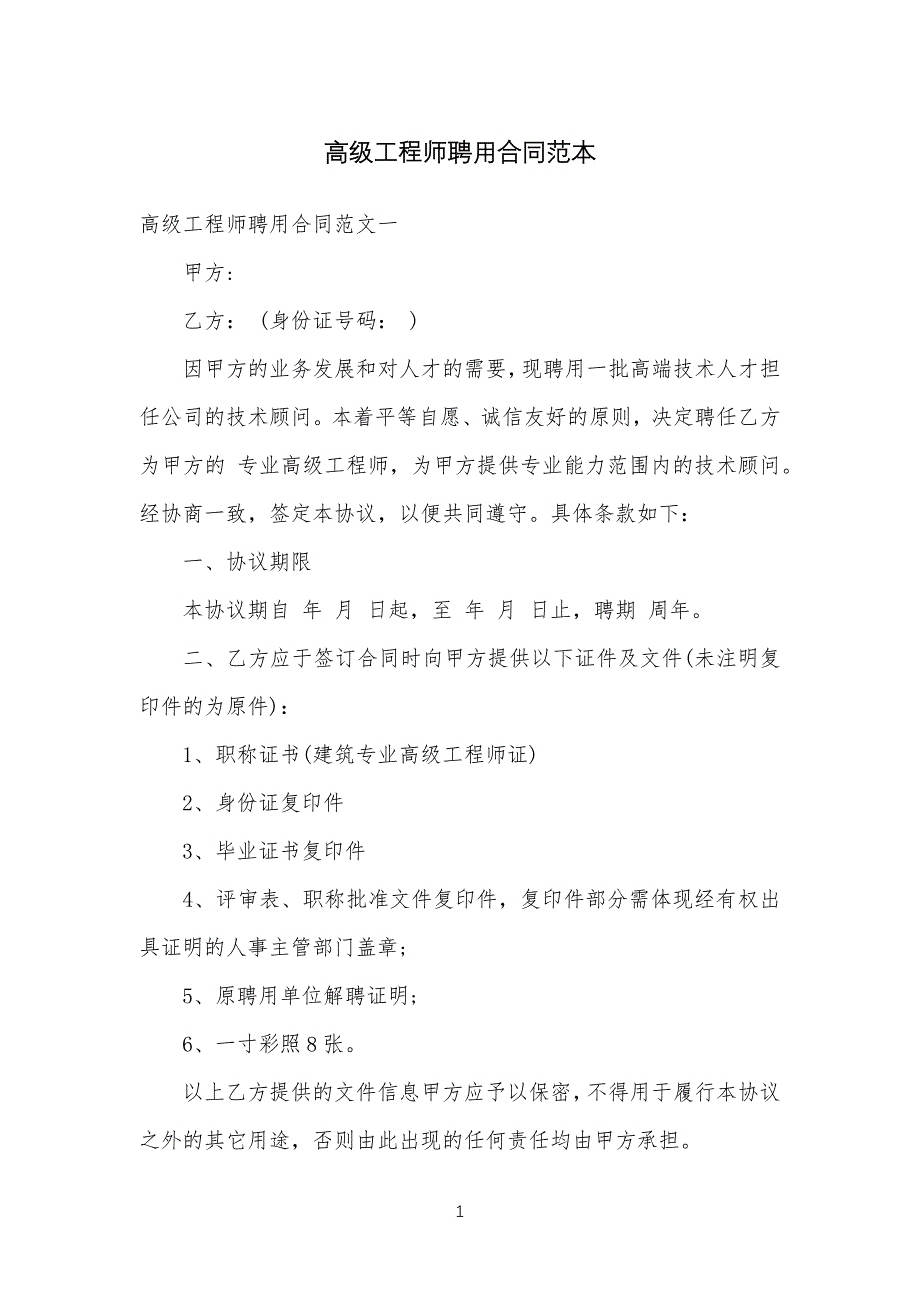 高级工程师聘用合同范本
高级工程师聘用合同范文一
甲方:
乙方： (身份证号码： )
因甲方的业务发展和对人才的需要,现聘用一批高端技术人才担
任公司的技术顾问。本着平等自愿、诚信友好的原则，决定聘任乙方
为甲方的 专业高级工程师，为甲方提供专业能力范围内的技术顾问。
经协商一致，签定本协议，以便共同遵守。具体条款如下：
一、协议期限
本协议期自 年 月 日起，至 年 月 日止，聘期 周年。
二、乙方应于签订合同时向甲方提供以下证件及文件(未注明复
印件的为原件)：
1、职称证书(建筑专业高级工程师证)
2、身份证复印件
3、毕业证书复印件
4、评审表、职称批准文件复印件，复印件部分需体现经有权出
具证明的人事主管部门盖章;
5、原聘用单位解聘证明;
6、一寸彩照8张。
以上乙方提供的文件信息甲方应予以保密,不得用于履行本协议
之外的其它用途，否则由此出现的任何责任均由甲方承担。
1